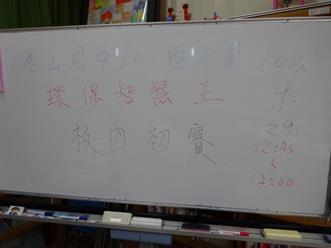 冬山國中103學年度
環保智慧王
校內初賽
103.
9.
29.
12:35
13:00